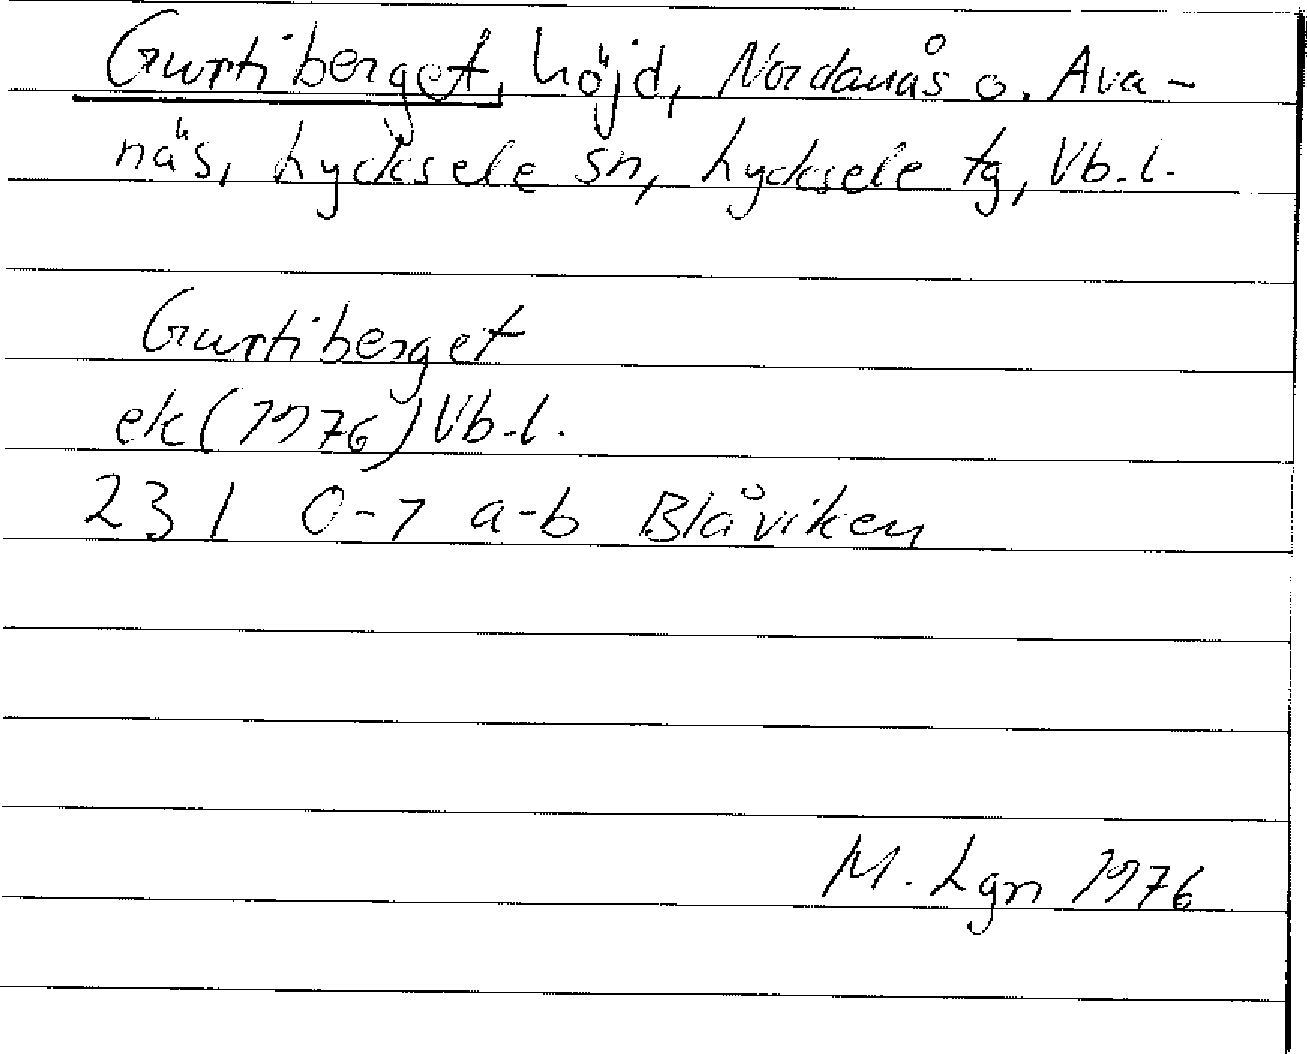 Gurtiberget, höjd, Nordanås o. Ava-
näs, Lycksele sn, Lycksele tg, Vb. l.
Gurtiberget
ek (1976) Vb. l.
23 I 0-1 a-b Blåviken
M. Lgn 1976